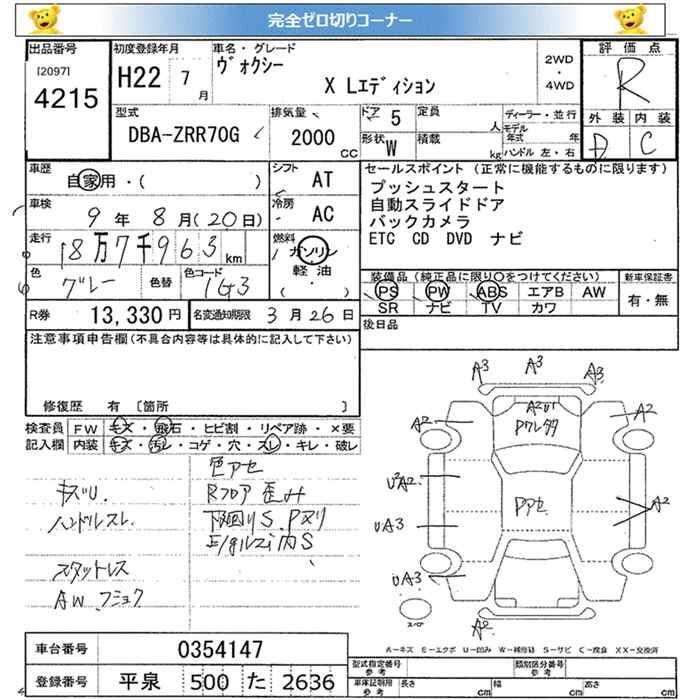 完全ゼロ切りコーナー
出品番号
[2097]
4215
初度登録年月
H22 7月
車名・グレード
ヴォクシー
X Lエディション
2WD
・
4WD
評価点
R
外装 内装
D C
型式
DBA-ZRR70G
排気量
2000
CC
ドア 5
形状 W
定員
人
積載
kg
ディーラー・並行
モデル年式 年
ハンドル 左・右
車歴
自家用・( )
車検
9年 8月(20日)
走行
18万7千963km
色
グレー
色替
色コード
1G3
シフト AT
冷房 AC
燃料
ガソリン
軽油
( ・ )
セールスポイント (正常に機能するものに限ります)
プッシュスタート
自動スライドドア
バックカメラ
ETC CD DVD ナビ
装備品(純正品に限り○をつけてください)
PS PW ABS エアB AW
SR ナビ TV カワ
新車保証書
有・無
後日品
R券 13,330円
名変通知期限 3月26日
注意事項申告欄(不具合内容等は具体的に記入して下さい)
修復歴 有 〔箇所 〕
検査員記入欄
FW キズ・飛石・ヒビ割・リペア跡・×要
内装 キズ・汚レ・コゲ・穴・スレ・キレ・破レ
キズU.
ハンドルスレ.
スタットレス
AW.フショク
色アセ
Rフロア歪み
下回りS.Pヌリ
E/gルーム内S
A3
A3
A3
A2
A2
A2U1
Pアセ
U2A2
UA3
A2
UA3
A2
スペアー
A-キズ E-エクボ U-凹み W-補修跡 S-サビ C-腐食 XX-交換済
車台番号 0354147
登録番号 平泉 500 た 2636
型式指定番号
参考
類別区分番号
参考
車庫証明用
参考
長さ cm
幅 cm
高さ cm